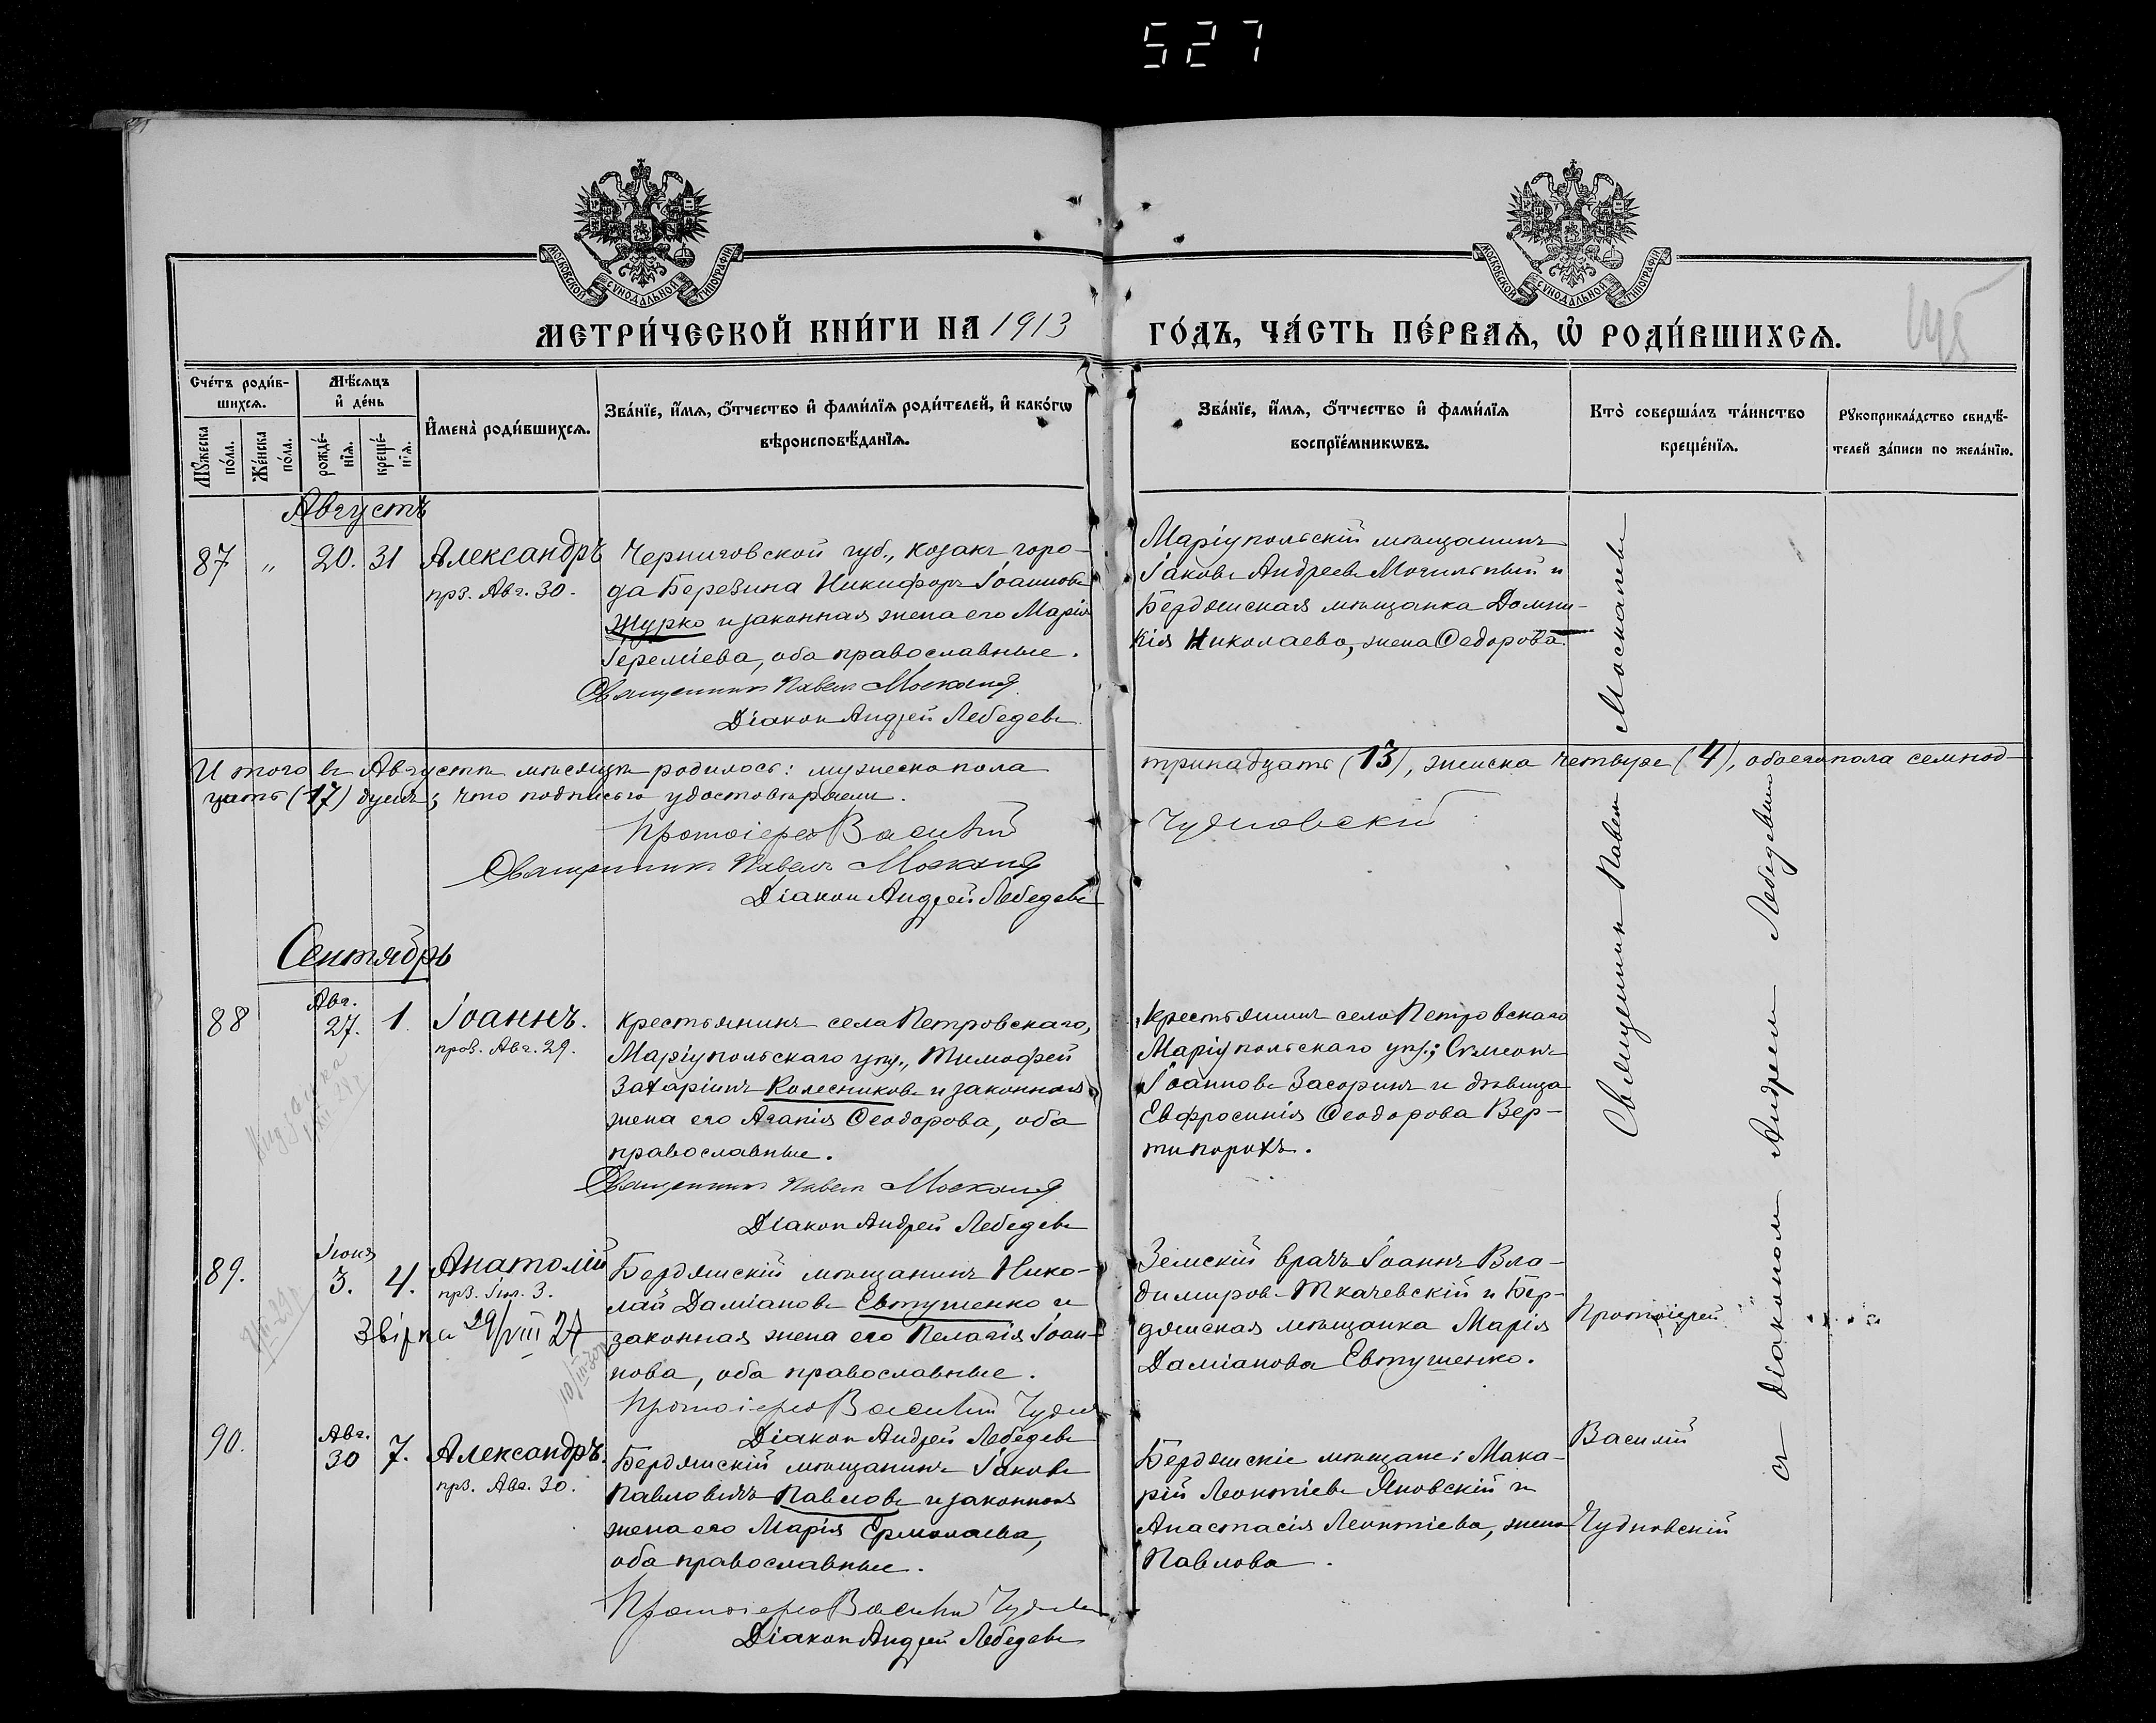 527
МОСКОВСКОЙ СУНОДАЛЬНОЙ ТИПОГРАФІИ
МОСКОВСКОЙ СУНОДАЛЬНОЙ ТИПОГРАФІИ
МЕТРИ́ЧЕСКОЙ КНИ́ГИ НА 1913
ГО́ДЪ, ЧА́СТЬ ПЕ́РВАѦ, Ѡ҆ РОДИ́ВШИХСѦ.
Сче́тъ роди́в-
шихсѧ.
Мꙋжеска
по́ла.
Же́нска
по́ла.
Мѣ́сѧцъ
и҆ де́нь
рожде́-
нїѧ.
креще́-
нїѧ.
И҆мена̀ роди́вшихсѧ.
Зва́нїе, и҆́мѧ, ѻ҆́тчество и҆ фами́лїѧ роди́телей, и҆ како́гѡ
вѣроисповѣ́данїѧ.
Зва́нїе, и҆́мѧ, ѻ҆́тчество и҆ фами́лїѧ
воспрїе́мникѡвъ.
Кто̀ соверша́лъ та́инство
креще́нїѧ.
Рꙋкоприкла́дство свидѣ́-
телей за́писи по жела́нїю.
Августъ
87 „ 20. 31 Александръ
прз. Авг. 30.
Черниговской губ., козакъ горо-
да Березина Никифоръ Іоанновъ
Журко и законная жена его Марія
Іереміева, оба православные.
Священникъ Павелъ
Діаконъ Андрей Лебедевъ
Маріупольскій мѣщанинъ
Іаковъ Андреевъ Могильный и
Бердянская мѣщанка Домни-
кія Николаева, жена Ѳедорова.
Итого въ Августѣ мѣсяцѣ родилось: мужеска пола
тринадцать (13), женска четыре (4), обоего пола семнад-
цать (17) душъ; что подписью удостовѣряемъ.
Протоіерей Василій
Чудновскій
Священникъ Павелъ
Діаконъ Андрей Лебедевъ
Сентябрь
88 Авг. 27. 1. Іоаннъ.
пров. Авг. 29.
Крестьянинъ села Петровскаго,
Маріупольскаго уѣз., Тимофей
Захаріинъ Колесниковъ и законная
жена его Агапія Ѳеодорова, оба
православные.
Священникъ Павелъ
Діаконъ Андрей Лебедевъ
Крестьянинъ села Петровскаго
Маріупольскаго уѣз.; Сѵмеонъ
Іоанновъ Засоринъ и дѣвица
Евфросинія Ѳеодорова Вер-
типорохъ.
89. Іюня 3. 4. Анатолій
прз. Іюл. 3.
Звірка 29/VIII 27
Бердянскій мѣщанинъ Нико-
лай Даміановъ Евтушенко и
законная жена его Пелагія Іоан-
нова, оба православные.
Протоіерей Василій Чудн
Діаконъ Андрей Лебедевъ
Земскій врачъ Іоаннъ Вла-
диміров. Ткачевскій и Бер-
дянская мѣщанка Марія
Даміанова Евтушенко.
90. Авг. 30 7. Александръ.
прз. Авг. 30.
Бердянскій мѣщанинъ Іаковъ
Павловичъ Павловъ и законная
жена его Марія Ермолаева,
оба православные.
Протоіерей Василій
Діаконъ Андрей Лебедевъ
Бердянскіе мѣщане: Мака-
рій Леонтіевъ Яновскій и
Анастасія Леонтіева, жена
Павлова.
Священникъ Павелъ
Протоіерей
Василій
Чудновскій
съ діакономъ Андреемъ Лебедевымъ